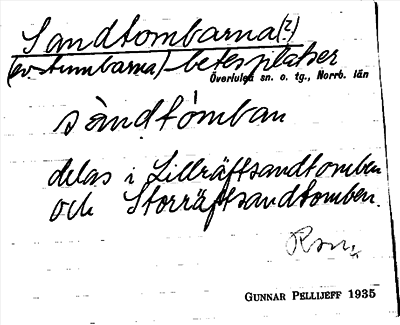 Sandtombarna(?)
(ev. tumbarna) betesplatser
Överluleå sn. o. tg., Norrb. län
sàndtómban
delas i Lillräftsandtomben
och Storräftsandtomben.
GUNNAR PELLIJEFF 1935